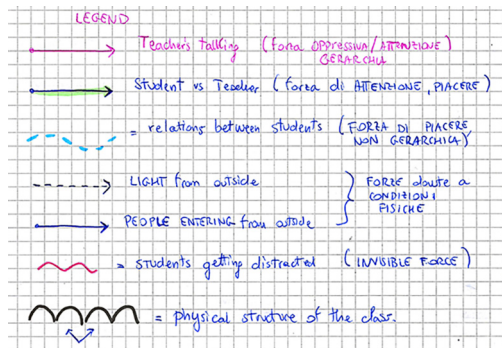 LEGEND
Teacher's talking (forza OPPRESSIVA/ATTENZIONE)
GERARCHIA
Student vs Teacher (forza di ATTENZIONE, PIACERE)
= relations between students (FORZA DI PIACERE
NON GERARCHICA)
LIGHT from outside
FORZE dovute a
CONDIZIONI
FISICHE
PEOPLE ENTERING from outside
= students getting distracted (INVISIBLE FORCE)
= physical structure of the class.